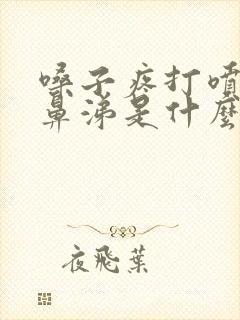 嗓子疼打噴
鼻涕是什麼
夜飛葉